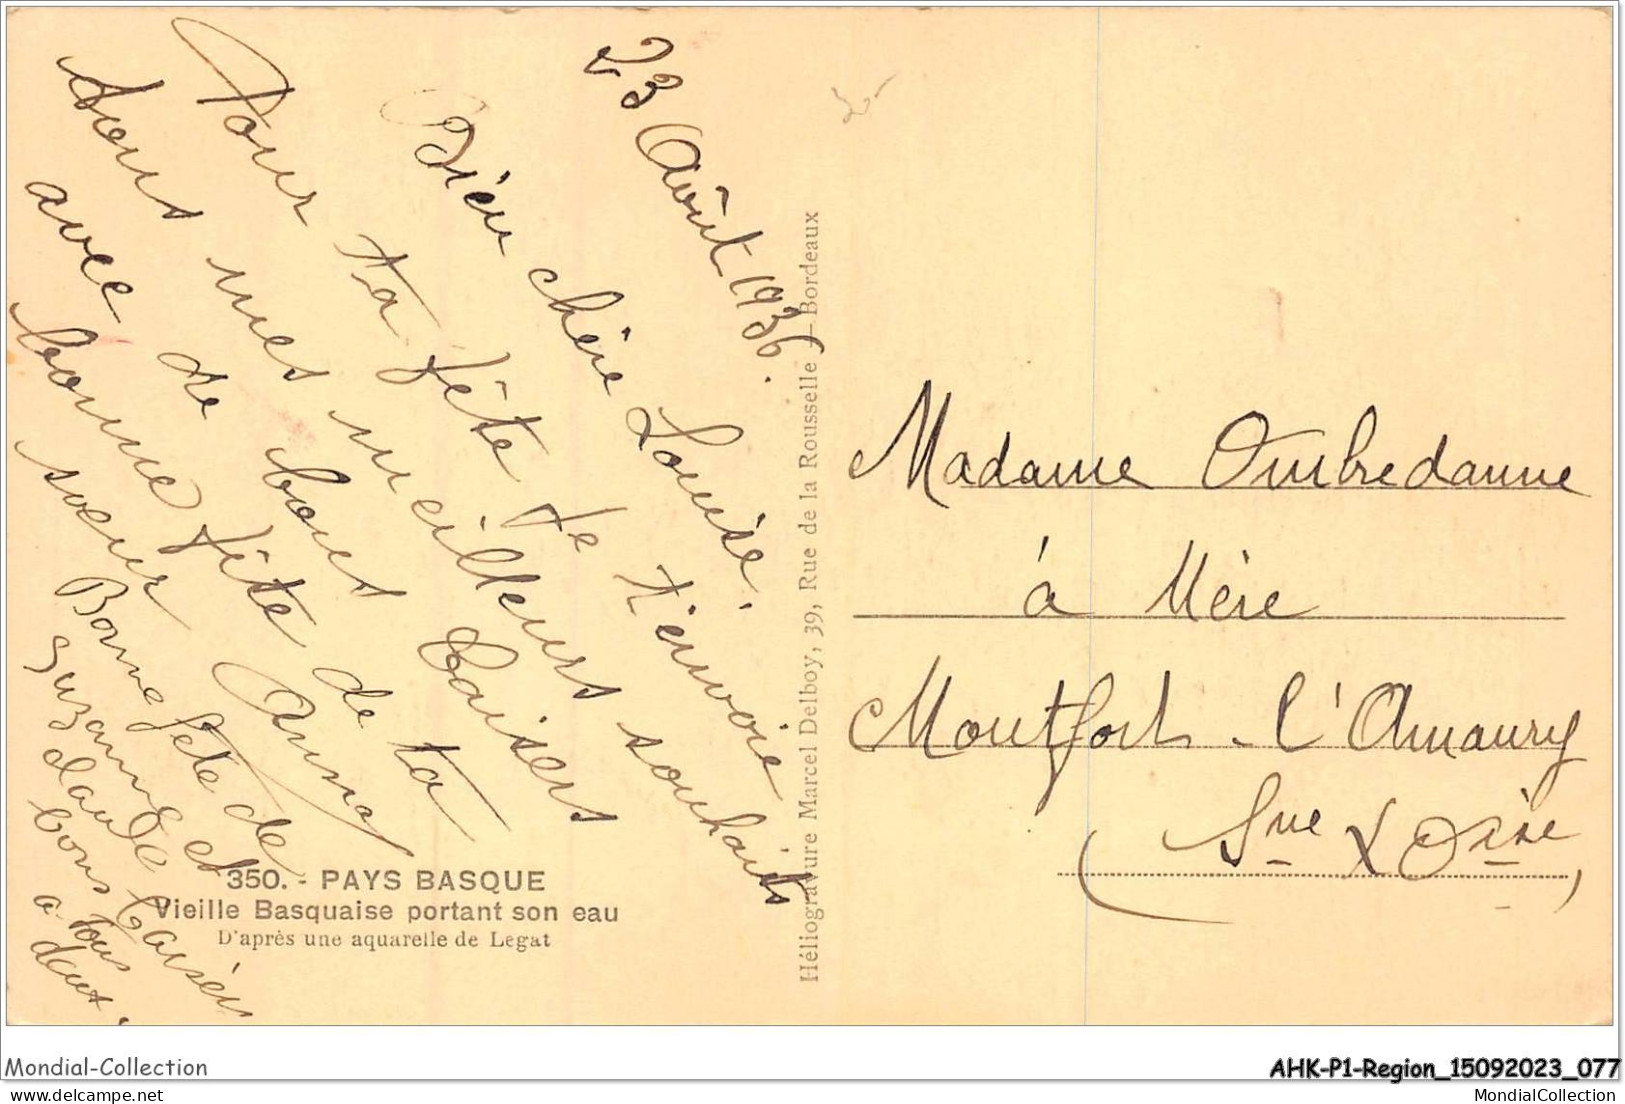 23 Août 1936.
Bien chère Louise.
Pour ta fête je t'envoie
tous mes meilleurs souhaits
avec de bons baisers
bonne fête de ta
soeur Anna
Bonne fête de
Suzanne et
Claude
bons baisers
à tous
deux.
350. - PAYS BASQUE
Vieille Basquaise portant son eau
D'après une aquarelle de Legat
Héliogravure Marcel Delboy, 39, Rue de la Rousselle - Bordeaux
Madame Ombredanne
à Méré
Montfort - l'Amaury
(Sne & Oise)
Mondial-Collection
AHK-P1-Region_15092023_077
www.delcampe.net
MondialCollection